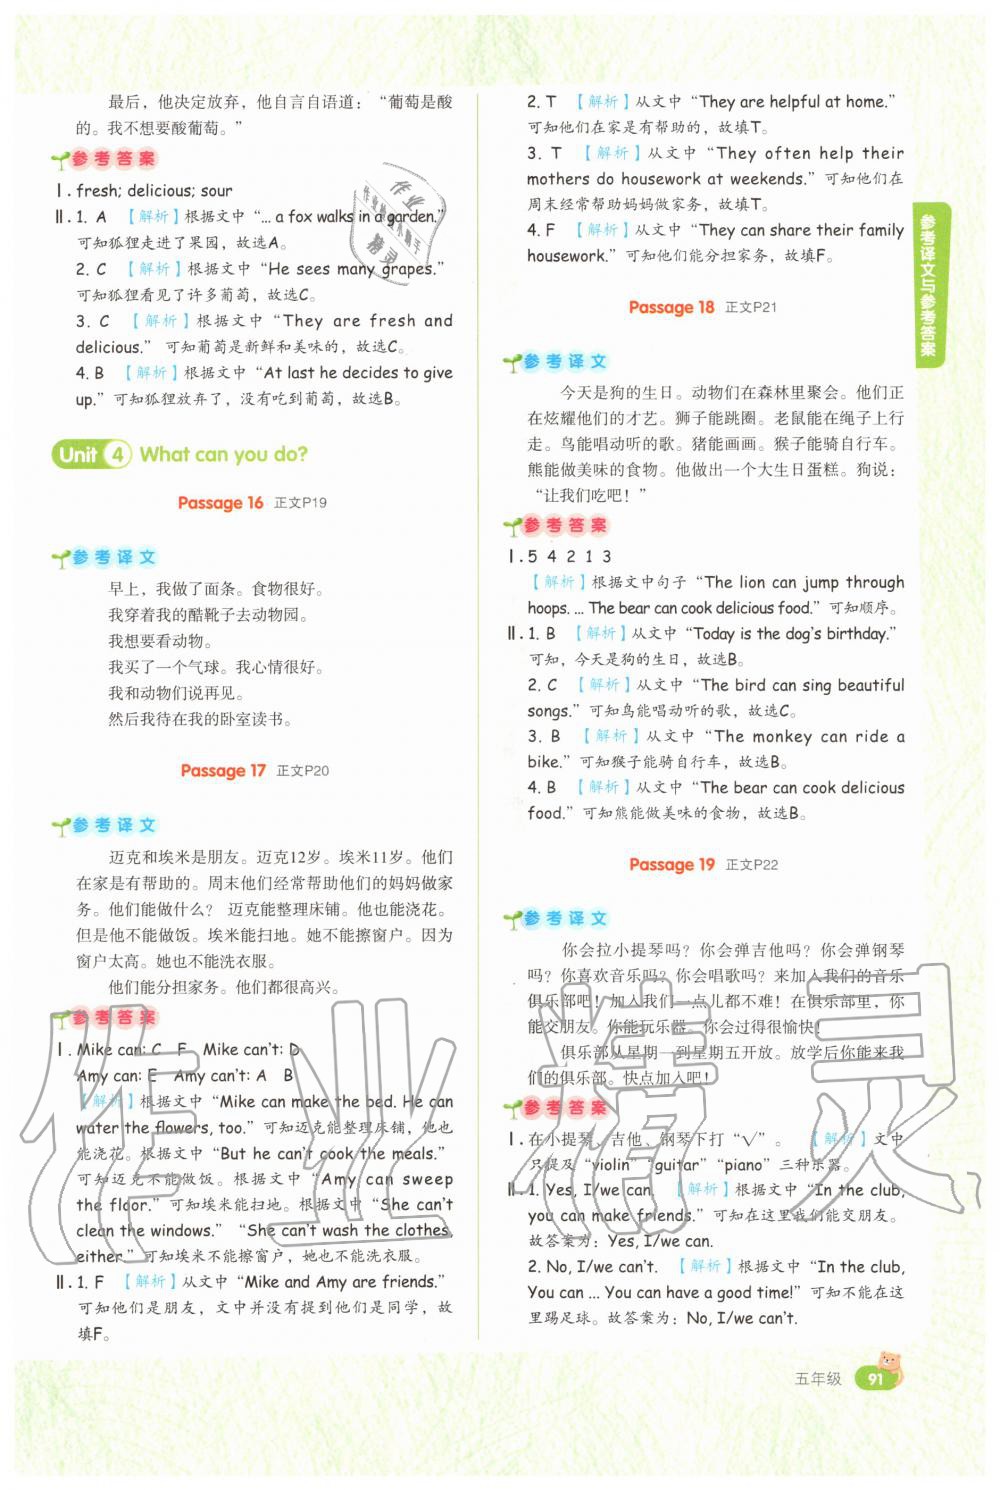 最后，他决定放弃，他自言自语道：“葡萄是酸
的。我不想要酸葡萄。”
参考答案
Ⅰ. fresh; delicious; sour
Ⅱ. 1. A 【解析】根据文中“... a fox walks in a garden.”
可知狐狸走进了果园，故选A。
2. C 【解析】根据文中“He sees many grapes.”
可知狐狸看见了许多葡萄，故选C。
3. C 【解析】根据文中“They are fresh and
delicious.” 可知葡萄是新鲜和美味的，故选C。
4. B 【解析】根据文中“At last he decides to give
up.” 可知狐狸放弃了，没有吃到葡萄，故选B。
Unit 4 What can you do?
Passage 16 正文P19
参考译文
早上，我做了面条。食物很好。
我穿着我的酷靴子去动物园。
我想要看动物。
我买了一个气球。我心情很好。
我和动物们说再见。
然后我待在我的卧室读书。
Passage 17 正文P20
参考译文
迈克和埃米是朋友。迈克12岁。埃米11岁。他们
在家是有帮助的。周末他们经常帮助他们的妈妈做家
务。他们能做什么？ 迈克能整理床铺。他也能浇花。
但是他不能做饭。埃米能扫地。她不能擦窗户。因为
窗户太高。她也不能洗衣服。
他们能分担家务。他们都很高兴。
参考答案
Ⅰ. Mike can: C F Mike can't: D
Amy can: E Amy can't: A B
【解析】根据文中“Mike can make the bed. He can
water the flowers, too.” 可知迈克能整理床铺，他也
能浇花。根据文中“But he can't cook the meals.”
可知迈克不能做饭。根据文中“Amy can sweep
the floor.” 可知埃米能扫地。根据文中“She can't
clean the windows.” “She can't wash the clothes,
either.” 可知埃米不能擦窗户，她也不能洗衣服。
Ⅱ. 1. F 【解析】从文中“Mike and Amy are friends.”
可知他们是朋友，文中并没有提到他们是同学，故
填F。
2. T 【解析】从文中“They are helpful at home.”
可知他们在家是有帮助的，故填T。
3. T 【解析】从文中“They often help their
mothers do housework at weekends.” 可知他们在
周末经常帮助妈妈做家务，故填T。
4. F 【解析】从文中“They can share their family
housework.” 可知他们能分担家务，故填F。
Passage 18 正文P21
参考译文
今天是狗的生日。动物们在森林里聚会。他们正
在炫耀他们的才艺。狮子能跳圈。老鼠能在绳子上行
走。鸟能唱动听的歌。猪能画画。猴子能骑自行车。
熊能做美味的食物。他做出一个大生日蛋糕。狗说：
“让我们吃吧！”
参考答案
Ⅰ. 5 4 2 1 3
【解析】根据文中句子“The lion can jump through
hoops. ... The bear can cook delicious food.” 可知顺序。
Ⅱ. 1. B 【解析】从文中“Today is the dog's birthday.”
可知，今天是狗的生日，故选B。
2. C 【解析】从文中“The bird can sing beautiful
songs.” 可知鸟能唱动听的歌，故选C。
3. B 【解析】从文中“The monkey can ride a
bike.” 可知猴子能骑自行车，故选B。
4. B 【解析】从文中“The bear can cook delicious
food.” 可知熊能做美味的食物，故选B。
Passage 19 正文P22
参考译文
你会拉小提琴吗？你会弹吉他吗？你会弹钢琴
吗？你喜欢音乐吗？你会唱歌吗？来加入我们的音乐
俱乐部吧！加入我们一点儿都不难！在俱乐部里，你
能交朋友。你能玩乐器。你会过得很愉快！
俱乐部从星期一到星期五开放。放学后你能来我
们的俱乐部。快点加入吧！
参考答案
Ⅰ. 在小提琴、吉他、钢琴下打“√”。 【解析】文中
只提及“violin” “guitar” “piano” 三种乐器。
Ⅱ. 1. Yes, I/we can. 【解析】根据文中“In the club,
you can make friends.” 可知在这里我们能交朋友。
故答案为：Yes, I/we can.
2. No, I/we can't. 【解析】根据文中“In the club,
You can ... You can have a good time!” 可知不能在这
里踢足球。故答案为：No, I/we can't.
参考译文与参考答案
五年级 91
作业精灵